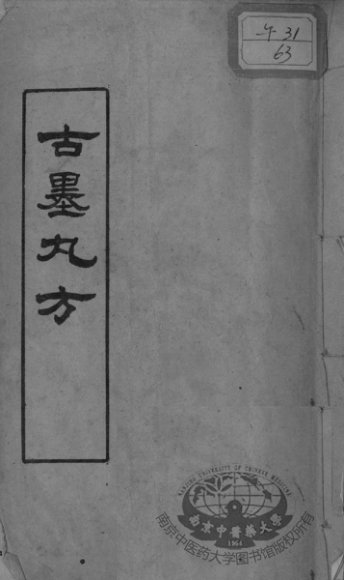 古墨丸方
午 31
63
NANJING UNIVERSITY OF CHINESE MEDICINE
南京中醫藥大學
1954
南京中医药大学图书馆版权所有